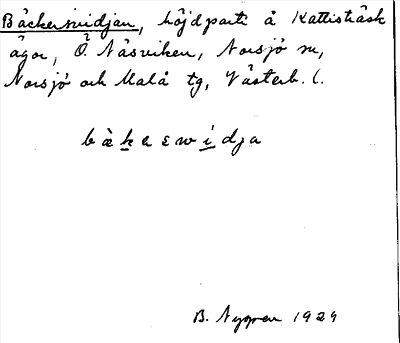 Bäckersvidjan, höjdparti å Kattisträsk
ägor, Ö. Näsviken, Norsjö sn,
Norsjö och Malå tg, Västerb. l.
B. Nygren 1929